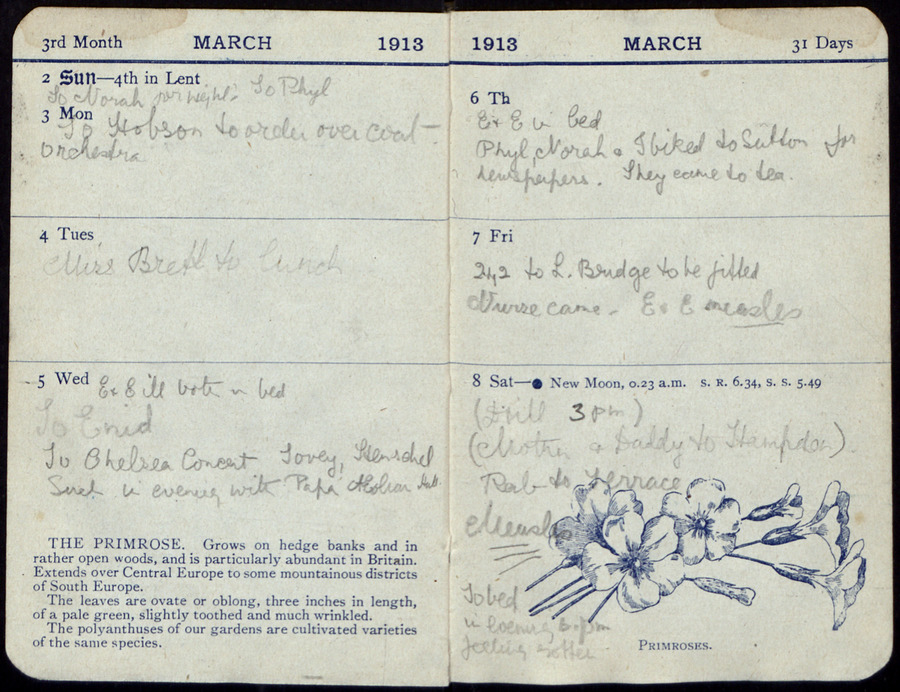 3rd Month MARCH 1913
2 Sun—4th in Lent
To Norah for night. To Phyl
3 Mon
To Hobson to order over coat—
Orchestra
4 Tues
Miss Brett to lunch
5 Wed E & E ill both in bed
To Enid
To Chelsea Concert Tovey, Henschel
in evening with Papa Æolian Hall
THE PRIMROSE. Grows on hedge banks and in
rather open woods, and is particularly abundant in Britain.
Extends over Central Europe to some mountainous districts
of South Europe.
The leaves are ovate or oblong, three inches in length,
of a pale green, slightly toothed and much wrinkled.
The polyanthuses of our gardens are cultivated varieties
of the same species.
1913 MARCH 31 Days
6 Th
E & E in bed
Phyl, Norah & I biked to Sutton for
newspapers. They came to tea.
7 Fri
to L. Bridge to be fitted
Nurse came. E & E measles
8 Sat—● New Moon, 0.23 a.m. S. R. 6.34, S. S. 5.49
(Drill 3 pm)
(Mother & Daddy to Hampden)
to Terrace
Measles
To bed
in evening
feeling
PRIMROSES.